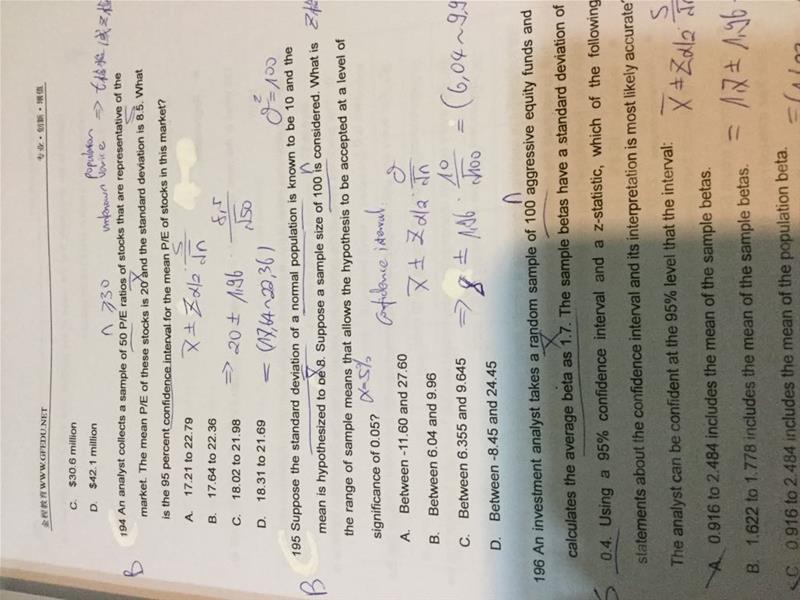 金程教育WWW.GFEDU.NET
专业·创新·增值
C. $30.6 million
D. $42.1 million
n ≥30 unknown population
B 194 An analyst collects a sample of 50 P/E ratios of stocks that are representative of the
market. The mean P/E of these stocks is 20 and the standard deviation is 8.5. What
is the 95 percent confidence interval for the mean P/E of stocks in this market?
A. 17.21 to 22.79
B. 17.64 to 22.36
C. 18.02 to 21.98
D. 18.31 to 21.69
X̄ ± Zα/2 S/√n
⇒ 20 ± 1.96 · 8.5/√50
= (17.64~22.36)
σ²=100
B 195 Suppose the standard deviation of a normal population is known to be 10 and the
mean is hypothesized to be 8. Suppose a sample size of 100 is considered. What is
the range of sample means that allows the hypothesis to be accepted at a level of
significance of 0.05? α=5%
confidence interval.
A. Between -11.60 and 27.60
B. Between 6.04 and 9.96
C. Between 6.355 and 9.645
D. Between -8.45 and 24.45
X̄ ± Zα/2 σ/√n
⇒ 8 ± 1.96 · 10/√100 = (6.04~9.9
196 An investment analyst takes a random sample of 100 aggressive equity funds and
calculates the average beta as 1.7. The sample betas have a standard deviation of
0.4. Using a 95% confidence interval and a z-statistic, which of the following
statements about the confidence interval and its interpretation is most likely accurate?
The analyst can be confident at the 95% level that the interval:
X̄ ± Zα/2 · S/√n
= 1.7 ± 1.96
A. 0.916 to 2.484 includes the mean of the sample betas.
B. 1.622 to 1.778 includes the mean of the sample betas.
C. 0.916 to 2.484 includes the mean of the population beta.